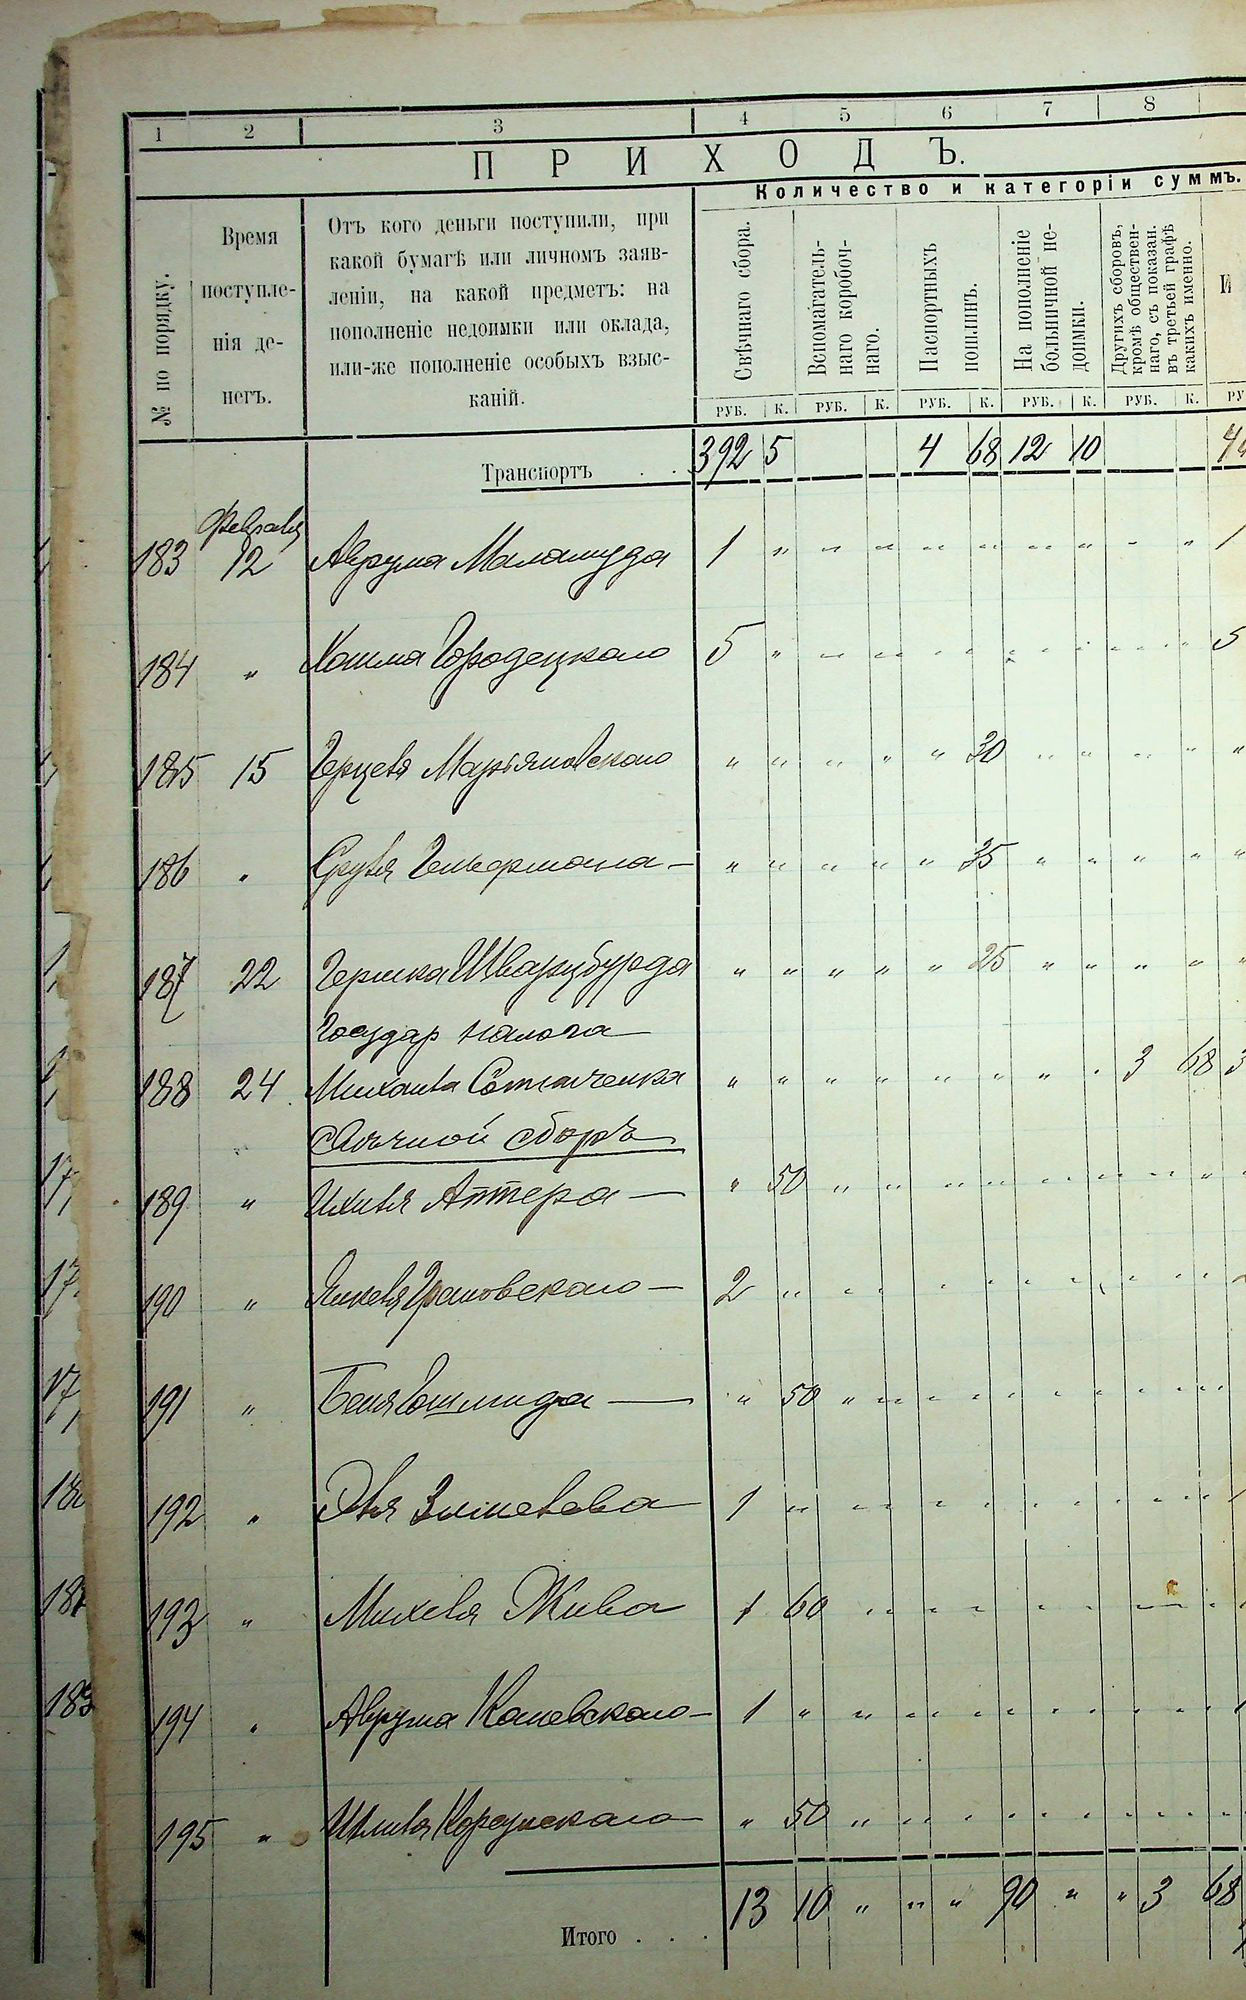 1 2 3 4 5 6 7 8
ПРИХОДЪ.
Количество и категоріи суммъ.
№ по порядку.
Время
поступле-
нія де-
негъ.
Отъ кого деньги поступили, при
какой бумагѣ или личномъ заяв-
леніи, на какой предметъ: на
пополненіе недоимки или оклада,
или-же пополненіе особыхъ взыс-
каній.
Свѣчнаго сбора.
Вспомагатель-
наго коробоч-
наго.
Паспортныхъ
пошлинъ.
На пополненіе
больничной не-
доимки.
Другихъ сборовъ,
кромѣ обществен-
наго, съ показан.
въ третьей графѣ
какихъ именно.
И
РУБ. К. РУБ. К. РУБ. К. РУБ. К. РУБ. К. РУ
Транспортъ . . 392 5 4 68 12 10
Февраля
183 12 Аврума Маламуда 1 " " " " " " " " " 1
184 " Хаима Городецкаго 5 " " " " " " " " " 5
185 15 Марьяновскаго " " " " " 30 " " " " "
186 " Сруля " " " " " 35 " " " " "
187 22 Гершка Шварцбурда " " " " " 25 " " " " "
Государ налога
188 24 " " " " " " " " 3 68 3
Свѣчной сборъ
189 " Аптера — " 50 " " " " " " " " "
190 " Янкеля Грановскаго — 2 " " " " " " " " "
191 " — " 50 " " " " " " " "
192 " 1 " " " " " " " " " 1
193 " Михеля Жива 1 60 " " " " " " " "
194 " Аврума Каневскаго — 1 " " " " " " " " " 1
195 " — " 50 " " " " " " " "
Итого . . . 13 10 " " " 90 " " 3 68